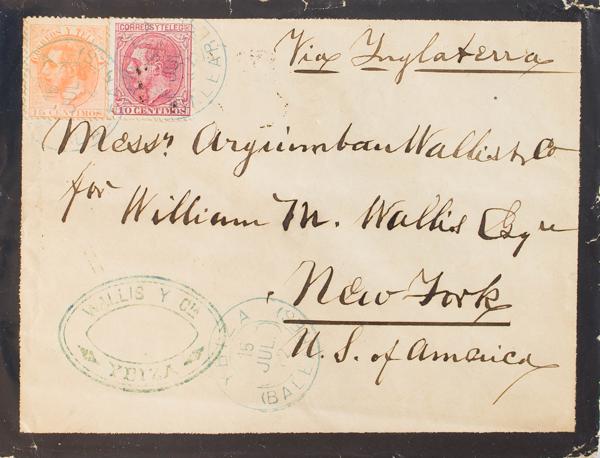 CORREOS Y TELEGS
15 CENTIMOS
CORREOS Y TELEGS
10 CENTIMOS
Via Inglaterra
Messrs Arguimbau Wallis & Co
for William M. Wallis Esqre
New York
U.S. of America
WALLIS Y CIA
YBIZA
YBIZA
15
JUL
(BALE